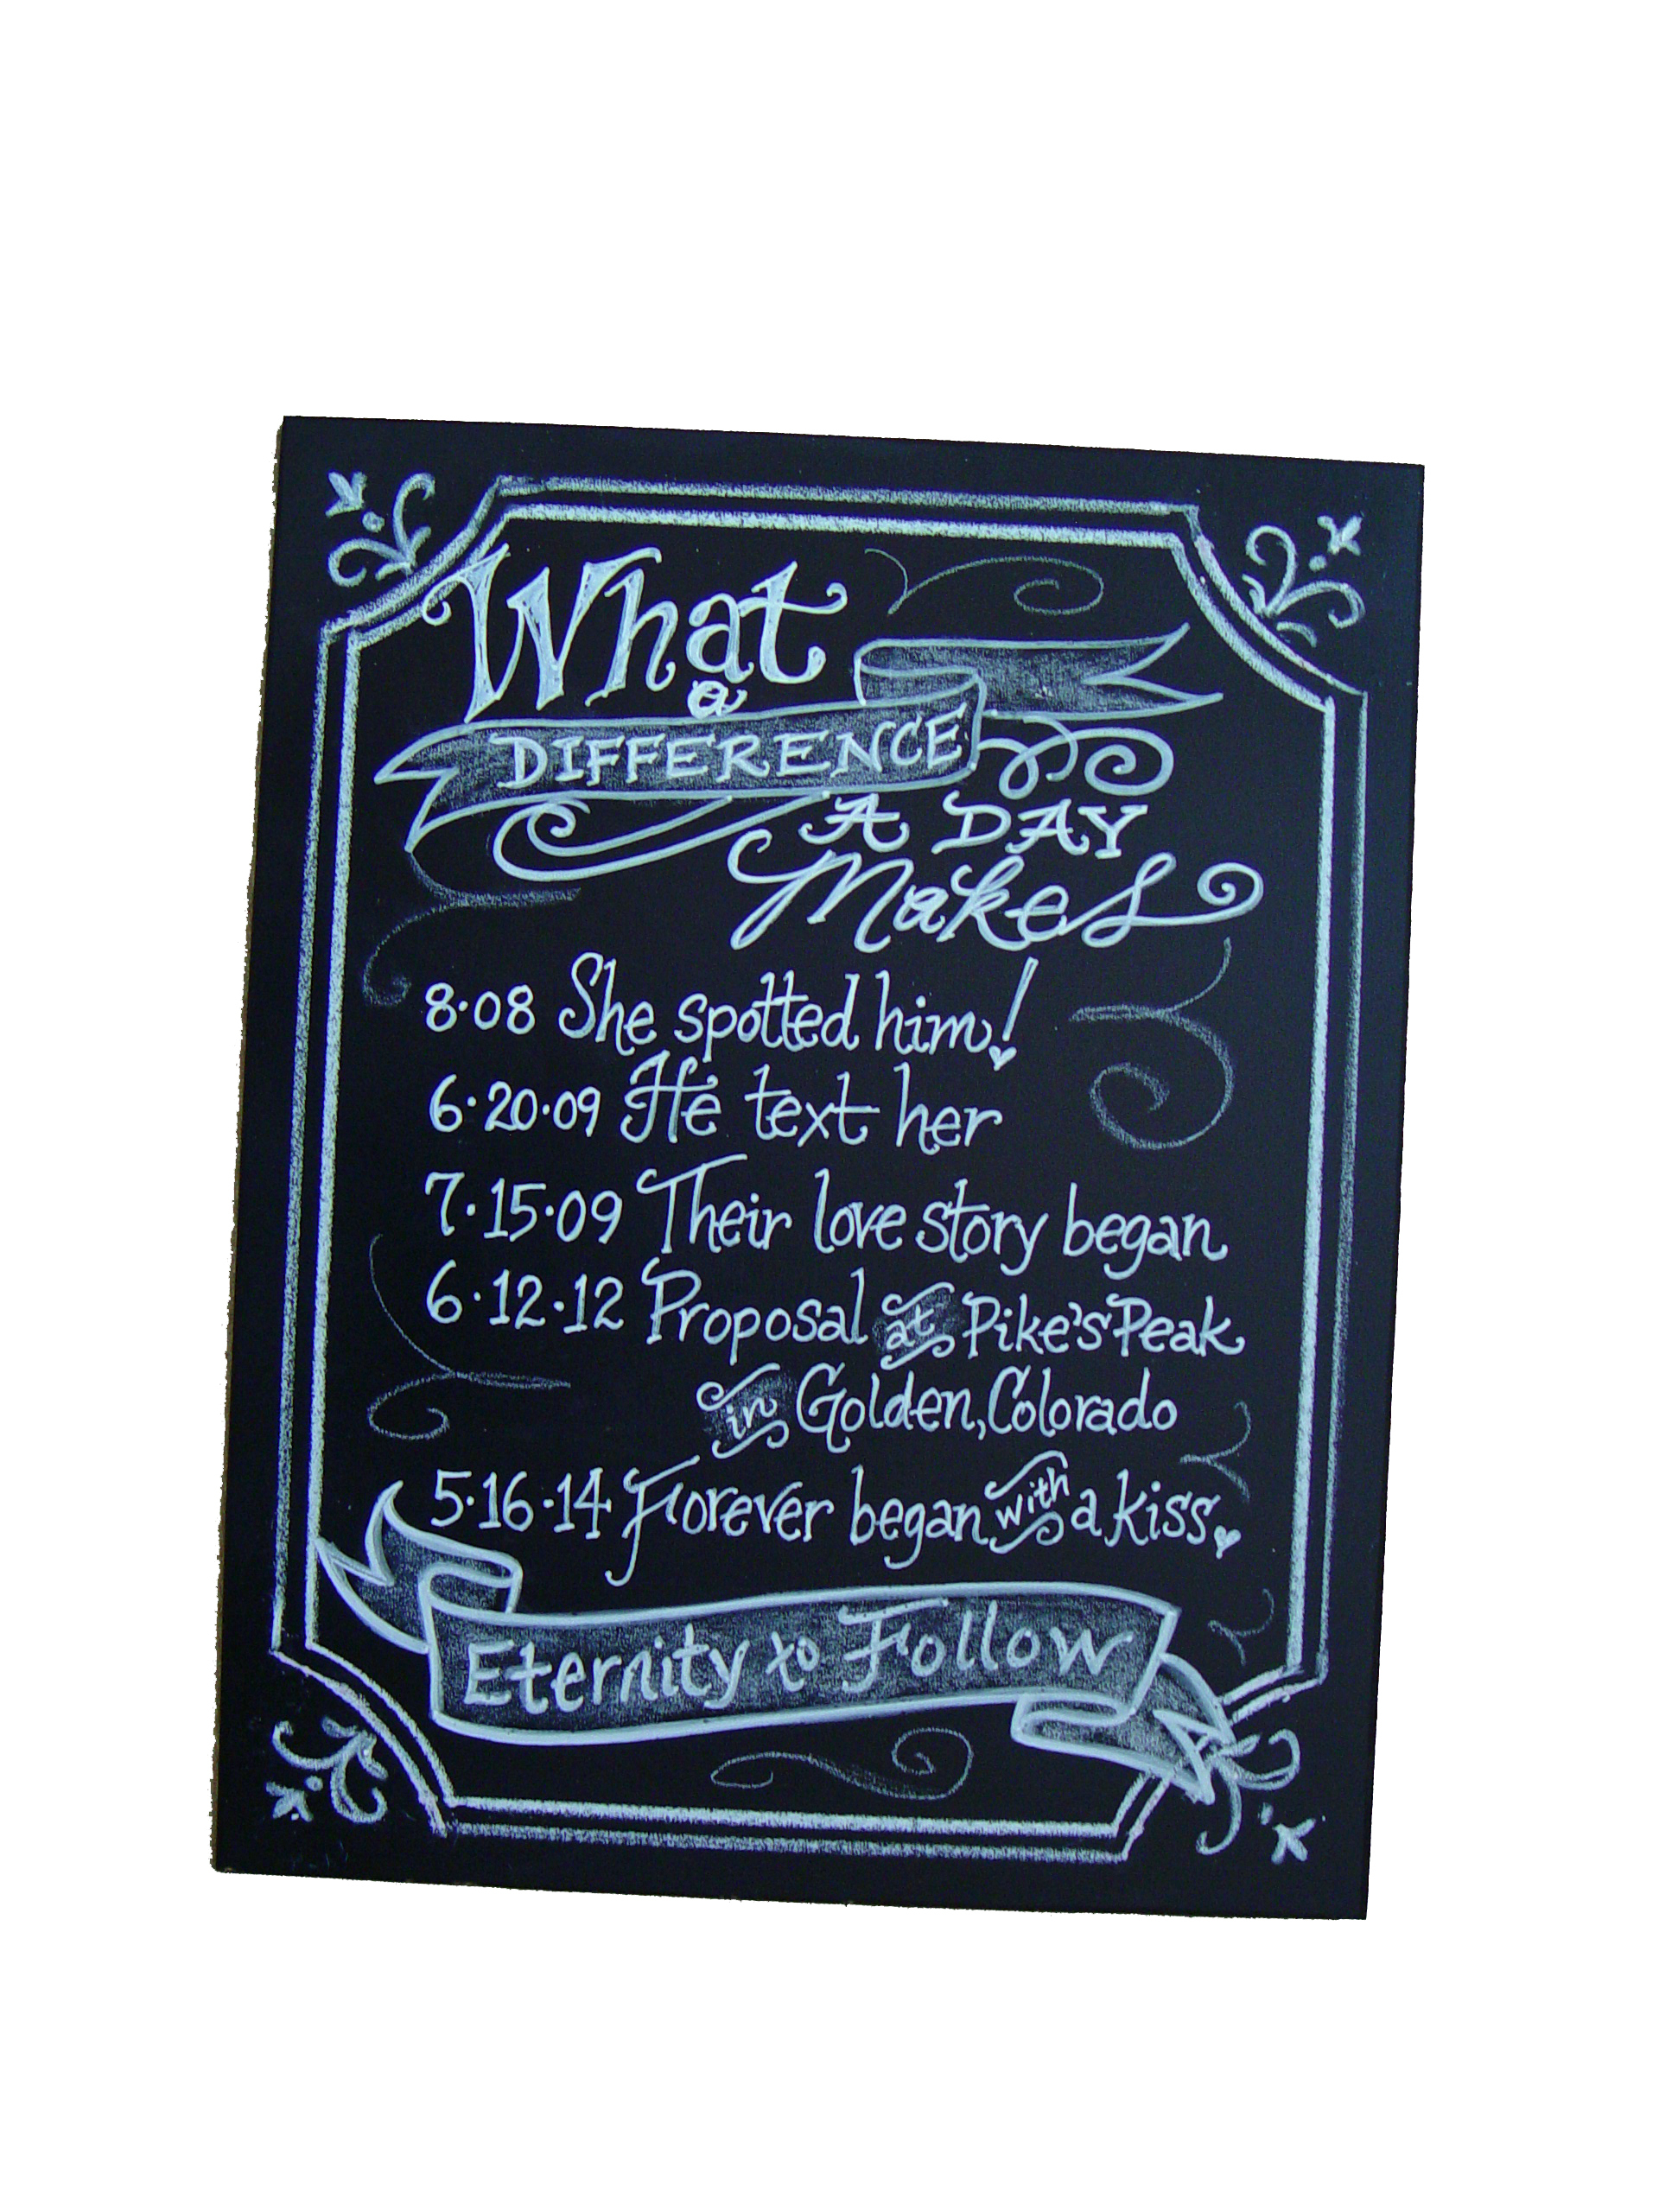 What
a
DIFFERENCE
A DAY
Makes
8·08 She spotted him!
6·20·09 He text her
7·15·09 Their love story began
6·12·12 Proposal at Pike's Peak
in Golden, Colorado
5·16·14 Forever began with a kiss.
Eternity to Follow